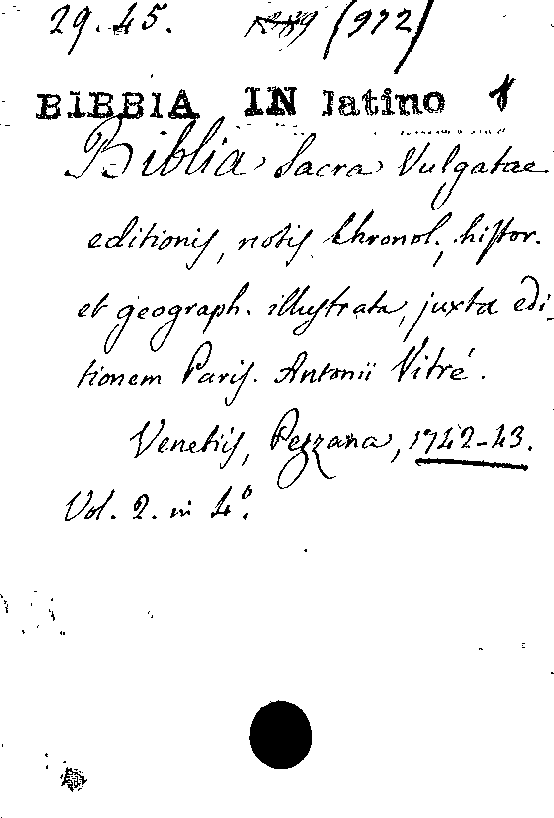 29.45. (972)
BIBBIA IN latino
Biblia Sacra Vulgatae
editionis, notis chronol., histor.
et geograph. illustrata, juxta edi-
tionem Paris. Antonii Vitré.
Venetiis, Pezzana, 1742-43.
Vol. 2. in 4°.